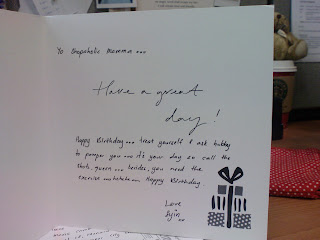 Yo Shopaholic Momma ...
Have a great
day!
Happy Birthday ... treat yourself & ask hubby
to pamper you ... it's your day so call the
shots, queen ... besides, you need the
exercise ... hehehe ... Happy Birthday.
Love